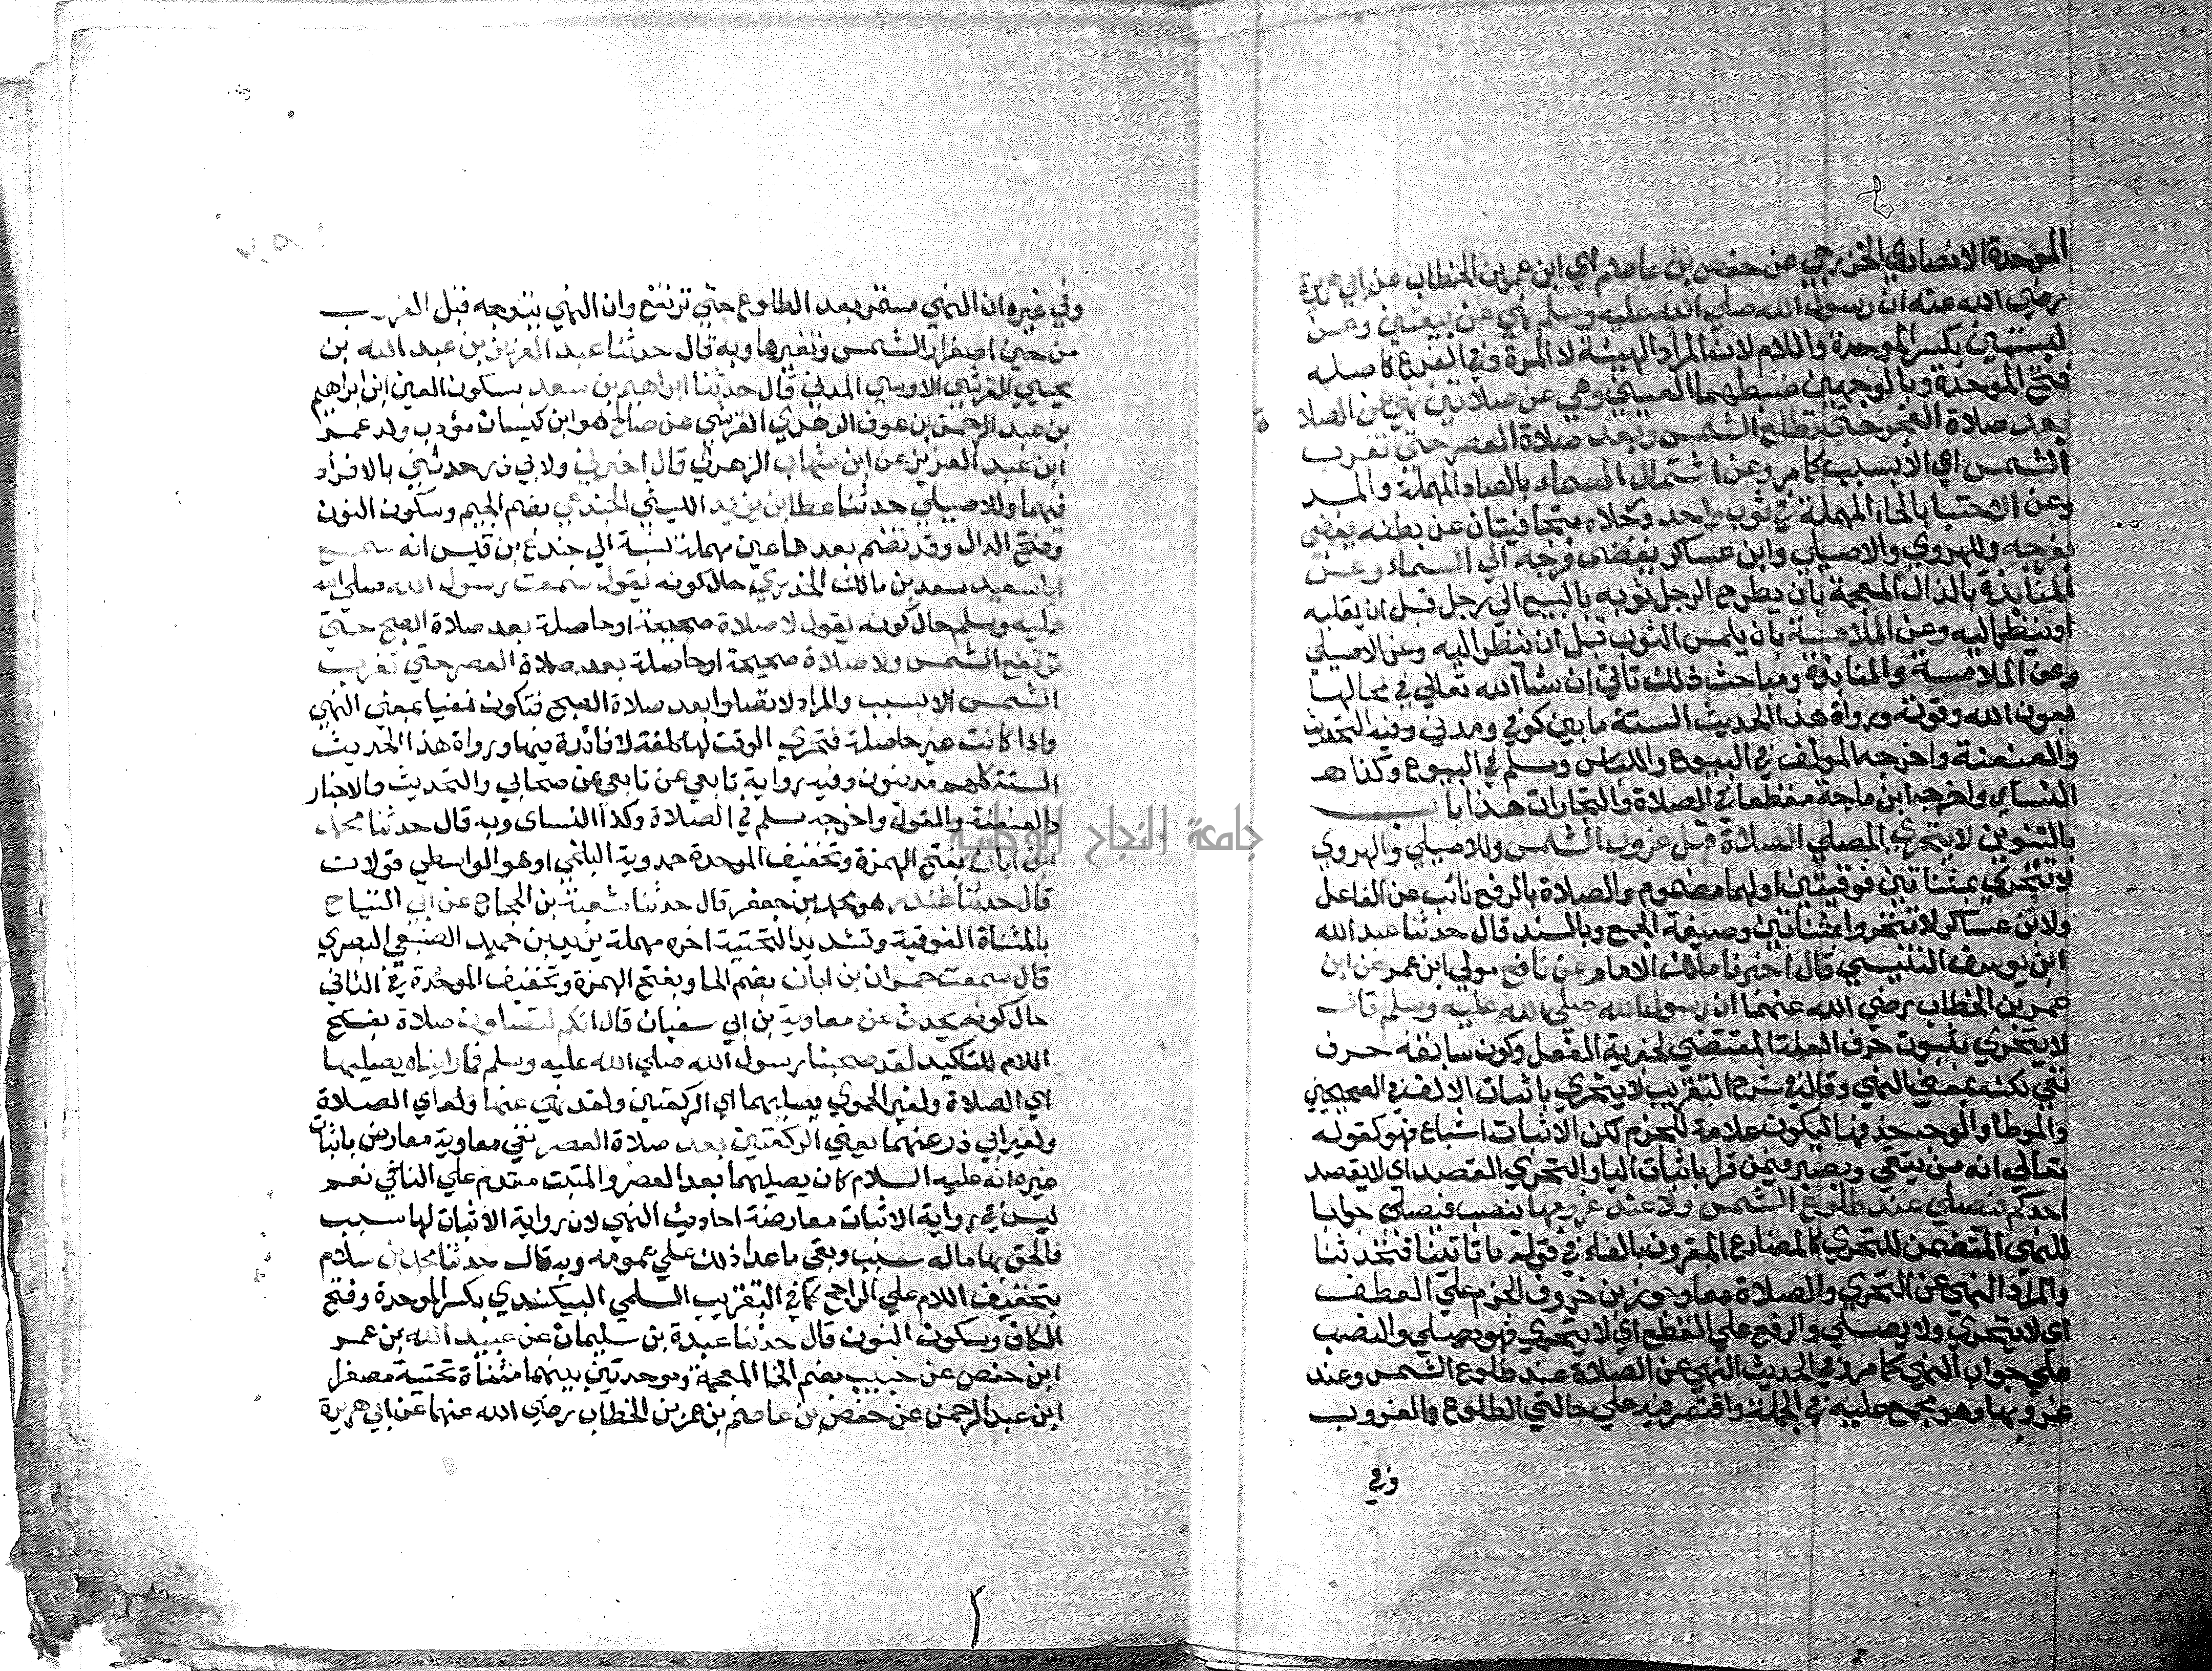 الموحدة الانصاري الخزرجي عن حفص بن عاصم اي ابن عمر بن الخطاب عن ابي هريرة
رضي الله عنه ان رسول الله صلي الله عليه وسلم نهي عن بيعتين وعن
لبستين بكسر الموحدة واللام لان المراد الهيئة لا المرة وفي الفرع كاصله
فتح الموحدة وبالوجهين ضبطهما العيني وهي عن صلاتين نهي عن الصلاة
بعد صلاة الفجر حتي تطلع الشمس وبعد صلاة العصر حتي تغرب
الشمس اي الا بسبب كما مر وعن اشتمال الصماء بالصاد المهملة والمد
وعن الاحتبا بالحاء المهملة في ثوب واحد ورجلاه متجافيتان عن بطنه يفضي
بفرجه وللهروي والاصيلي وابن عساكر يفضي فرجه الي السماء وعن
المنابذة بالذال المعجمة بان يطرح الرجل ثوبه بالبيع الي رجل قبل ان يقلبه
او ينظر اليه وعن الملامسة بان يلمس الثوب قبل ان ينظر اليه وعن الاصيلي
وعن الملامسة والمنابذة ومباحث ذلك تاتي ان شا الله تعالي في محالها
بعون الله وقوته ورواة هذا الحديث الستة ما بين كوفي ومدني وفيه التحديث
والعنعنة واخرجه المولف في البيوع واللباس ومسلم في البيوع وكذا
النساي واخرجه ابن ماجة مقطعا في الصلاة والتجارات هذا باب
بالتنوين لا يتحري المصلي الصلاة قبل غروب الشمس وللاصيلي والهروي
لا تتحري بمثناتين فوقيتين اولهما مضموم والصلاة بالرفع نائب عن الفاعل
ولابن عساكر لا تتحروا بمثناتين وصيغة الجمع وبالسند قال حدثنا عبد الله
ابن يوسف التنيسي قال اخبرنا مالك الامام عن نافع مولي ابن عمر عن ابن
عمر بن الخطاب رضي الله عنهما ان رسول الله صلي الله عليه وسلم قال
لا يتحري بثبوت حرف العلة المقتضي لخبرية الفعل وكون سابقه حرف
نفي لكنه بمعني النهي وقال في شرح التقريب لا يتحري باثبات الالف في الصحيحين
والموطا والوجه حذفها ليكون علامة للجزم لكن الاثبات اشباع فهو كقوله
تعالي انه من يتقي ويصبر فيمن قرا باثبات اليا والتحري القصد اي لا يقصد
احدكم فيصلي عند طلوع الشمس ولا عند غروبها بنصب فيصلي جوابا
للنهي المتضمن للتحري كالمضارع المقرون بالفاء في قوله ما تاتينا فتحدثنا
والمراد النهي عن التحري والصلاة معا وجوز بن خروف الجزم علي العطف
اي لا يتحري ولا يصلي والرفع علي القطع اي لا يتحري فهو يصلي والنصب
علي جواب النهي كما مر في الحديث النهي عن الصلاة عند طلوع الشمس وعند
غروبها وهو مجمع عليه في الجملة واقتصر فيه علي حالتي الطلوع والغروب
وفي
وفي غيره ان النهي مستمر بعد الطلوع حتي ترتفع وان النهي يتوجه قبل الغروب
من حين اصفرار الشمس وتغيرها وبه قال حدثنا عبد العزيز بن عبد الله بن
يحيي القرشي الاويسي المدني قال حدثنا ابراهيم بن سعد بسكون العين ابن ابراهيم
بن عبد الرحمن بن عوف الزهري القرشي عن صالح هو ابن كيسان مؤدب ولد عمر
ابن عبد العزيز عن ابن شهاب الزهري قال اخبرني ولابي ذر حدثني بالافراد
فيهما وللاصيلي حدثنا عطا بن يزيد الليثي الجندعي بضم الجيم وسكون النون
وفتح الدال وقد تضم بعدها عين مهملة نسبة الي جندع بن قيس انه سمع
ابا سعيد سعد بن مالك الخدري حال كونه يقول سمعت رسول الله صلي الله
عليه وسلم حال كونه يقول لا صلاة صحيحة او حاصلة بعد صلاة الصبح حتي
ترتفع الشمس ولا صلاة صحيحة او حاصلة بعد صلاة العصر حتي تغرب
الشمس الا بسبب والمراد لا تصلوا بعد صلاة الصبح فتكون نفيا بمعني النهي
واذا كانت غير حاصلة فتحري الوقت لها كلفة لا فائدة فيها ورواة هذا الحديث
الستة كلهم مدنيون وفيه رواية تابعي عن تابعي عن صحابي والتحديث والاخبار
والعنعنة والقول واخرجه مسلم في الصلاة وكذا النساي وبه قال حدثنا محمد
ابن ابان بفتح الهمزة وتخفيف الموحدة حمدوية البلخي او هو الواسطي قولان
قال حدثنا غندر هو محمد بن جعفر قال حدثنا شعبة بن الحجاج عن ابي التياح
بالمثناة الفوقية وتشديد التحتية اخره مهملة يزيد بن حميد الضبعي البصري
قال سمعت حمران بن ابان بضم الحا وبفتح الهمزة وتخفيف الموحدة في الثاني
حال كونه يحدث عن معاوية بن ابي سفيان قال انكم لتصلون صلاة بفتح
اللام للتاكيد لقد صحبنا رسول الله صلي الله عليه وسلم فما رايناه يصليها
اي الصلاة ولغير الحموي يصليهما اي الركعتين ولقد نهي عنها ولم اي الصلاة
ولغير ابي ذر عنهما يعني الركعتين بعد صلاة العصر نفي معاوية معارض باثبات
غيره انه عليه السلام كان يصليهما بعد العصر والمثبت مقدم علي النافي نعم
ليس في رواية الاثبات معارضة احاديث النهي لان رواية الاثبات لها سبب
فالحق بها ماله سبب وبقي ما عدا ذلك علي عمومه وبه قال حدثنا محمد بن سلام
بتخفيف اللام علي الراجح كما في التقريب السلمي البيكندي بكسر الموحدة وفتح
الكاف وسكون النون قال حدثنا عبدة بن سليمان عن عبيد الله بن عمر
ابن حفص عن خبيب بضم الخا المعجمة وموحدتين بينهما مثناة تحتية مصغر
ابن عبد الرحمن عن حفص بن عاصم بن عمر بن الخطاب رضي الله عنهما عن ابي هريرة
جامعة النجاح الوطنية